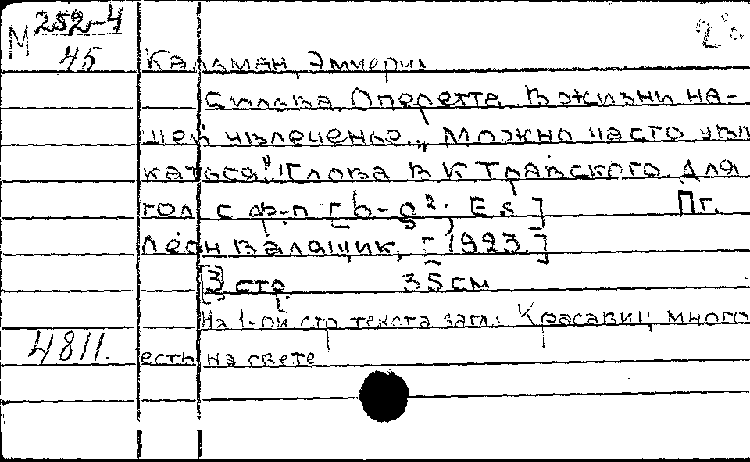 М 252-4
45
2°
Кальман, Эммерих
Сильва. Оперетта. В жизни на-
шей увлеченье... „Можно часто увл
каться". Слова В К Травского. Для
гол с ф-п [b-g². Es] Пг.
Леон Валящик, [1923]
[3] стр. 35 см
На 1-ой стр текста загл.: Красавиц много
4811. есть на свете